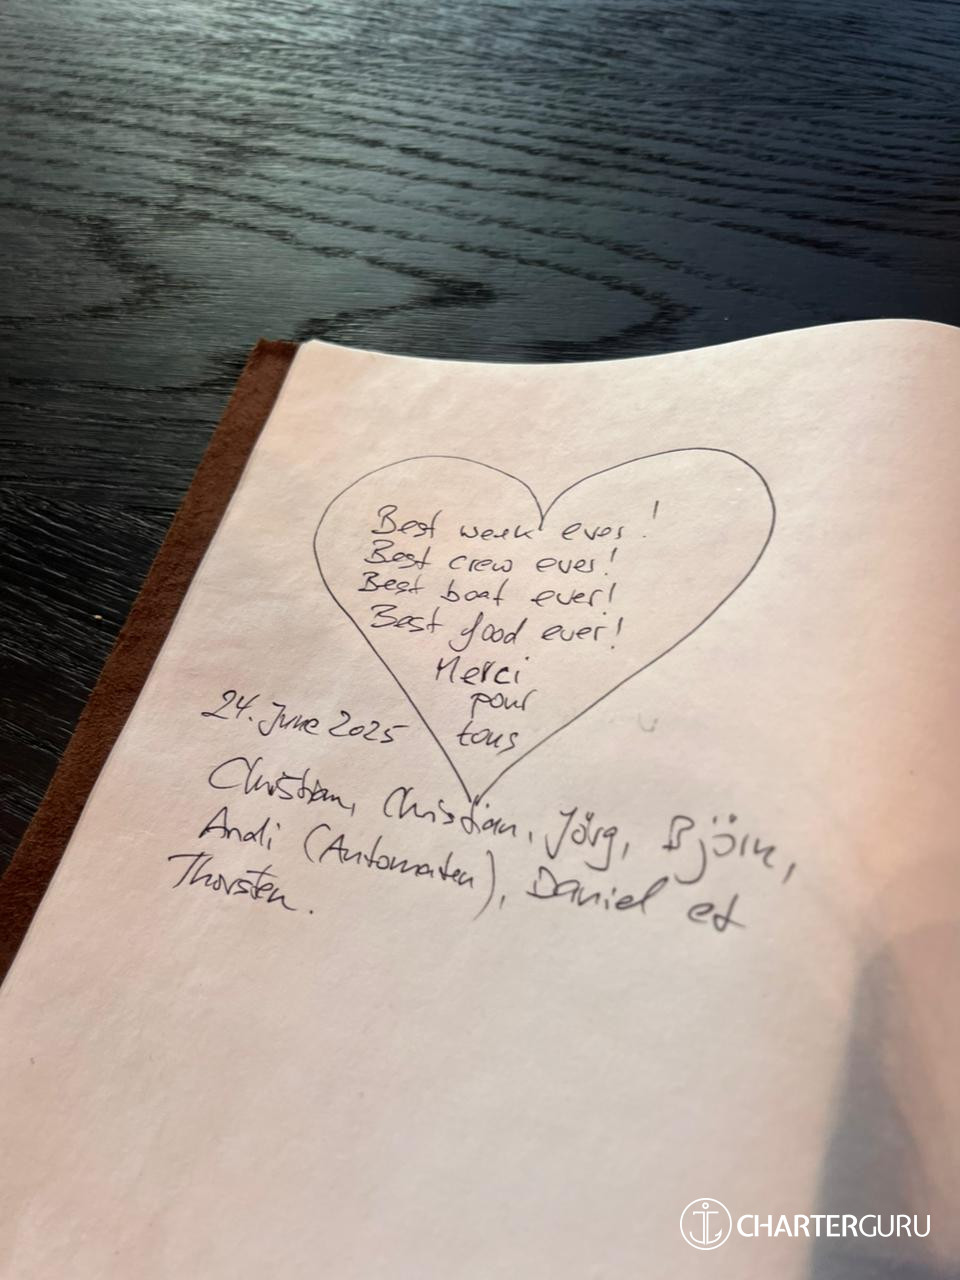 Best week ever!
Best crew ever!
Best boat ever!
Best food ever!
Merci
pour
tous
24. June 2025
Christian, Christian, Jörg, Björn,
Andi (Automaten), Daniel et
Thorsten.
CHARTERGURU